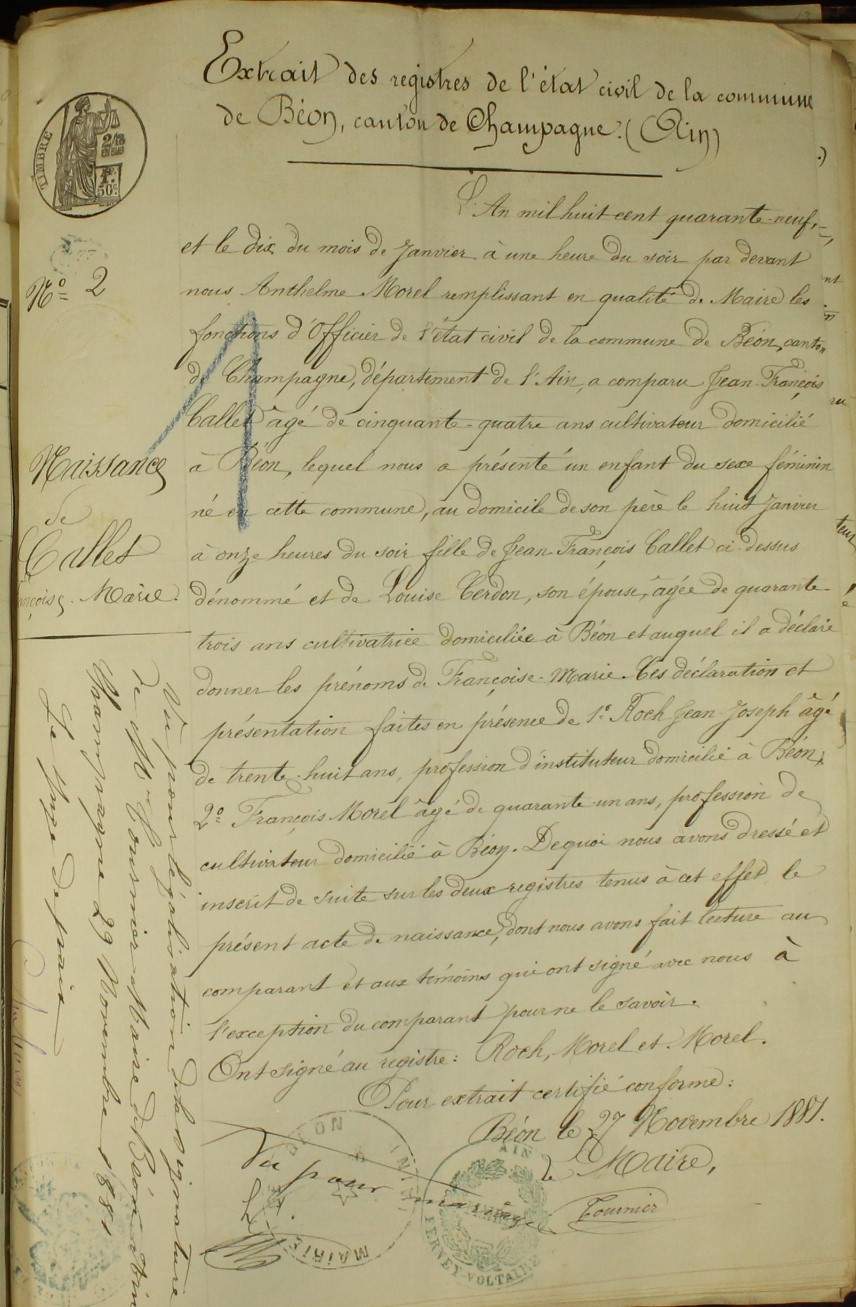 Extrait des registres de l'état civil de la commune
de Béon, canton de Champagne. (Ain)
TIMBRE
50c
L'An mil huit cent quarante-neuf,
et le dix du mois de Janvier à une heure du soir par devant
N° 2
nous Anthelme Morel remplissant en qualité de Maire les
fonctions d'Officier de l'état civil de la commune de Béon, canton
de Champagne, département de l'Ain, a comparu Jean-François
Callet âgé de cinquante-quatre ans cultivateur domicilié
Naissance
de
Callet
Marie.
à Béon, lequel nous a présenté un enfant du sexe féminin
né en cette commune, au domicile de son père le huit Janvier
à onze heures du soir fille de Jean-François Callet ci-dessus
dénommé et de Louise Cerdon, son épouse, âgée de quarante-
trois ans cultivatrice domiciliée à Béon et auquel il a déclaré
donner les prénoms de Françoise-Marie. Ces déclaration et
présentation faites en présence de 1° Roch Jean-Joseph âgé
de trente-huit ans, profession d'instituteur domicilié à Béon,
2° François Morel âgé de quarante un ans, profession de
cultivateur domicilié à Béon. De quoi nous avons dressé et
inscrit de suite sur les deux registres tenus à cet effet le
présent acte de naissance, dont nous avons fait lecture au
comparant et aux témoins qui ont signé avec nous à
l'exception du comparant pour ne le savoir.
Ont signé au registre: Roch, Morel et Morel.
Pour extrait certifié conforme:
Béon le 27 Novembre 1881.
Le Maire,
Tournier
Vu pour légalisation de la signature
de Mr Tournier Maire de Béon (Ain)
Champagne 29 Novembre 1881
Le Juge de paix
Vu pour
MAIRIE
AIN
FERNEY-VOLTAIRE